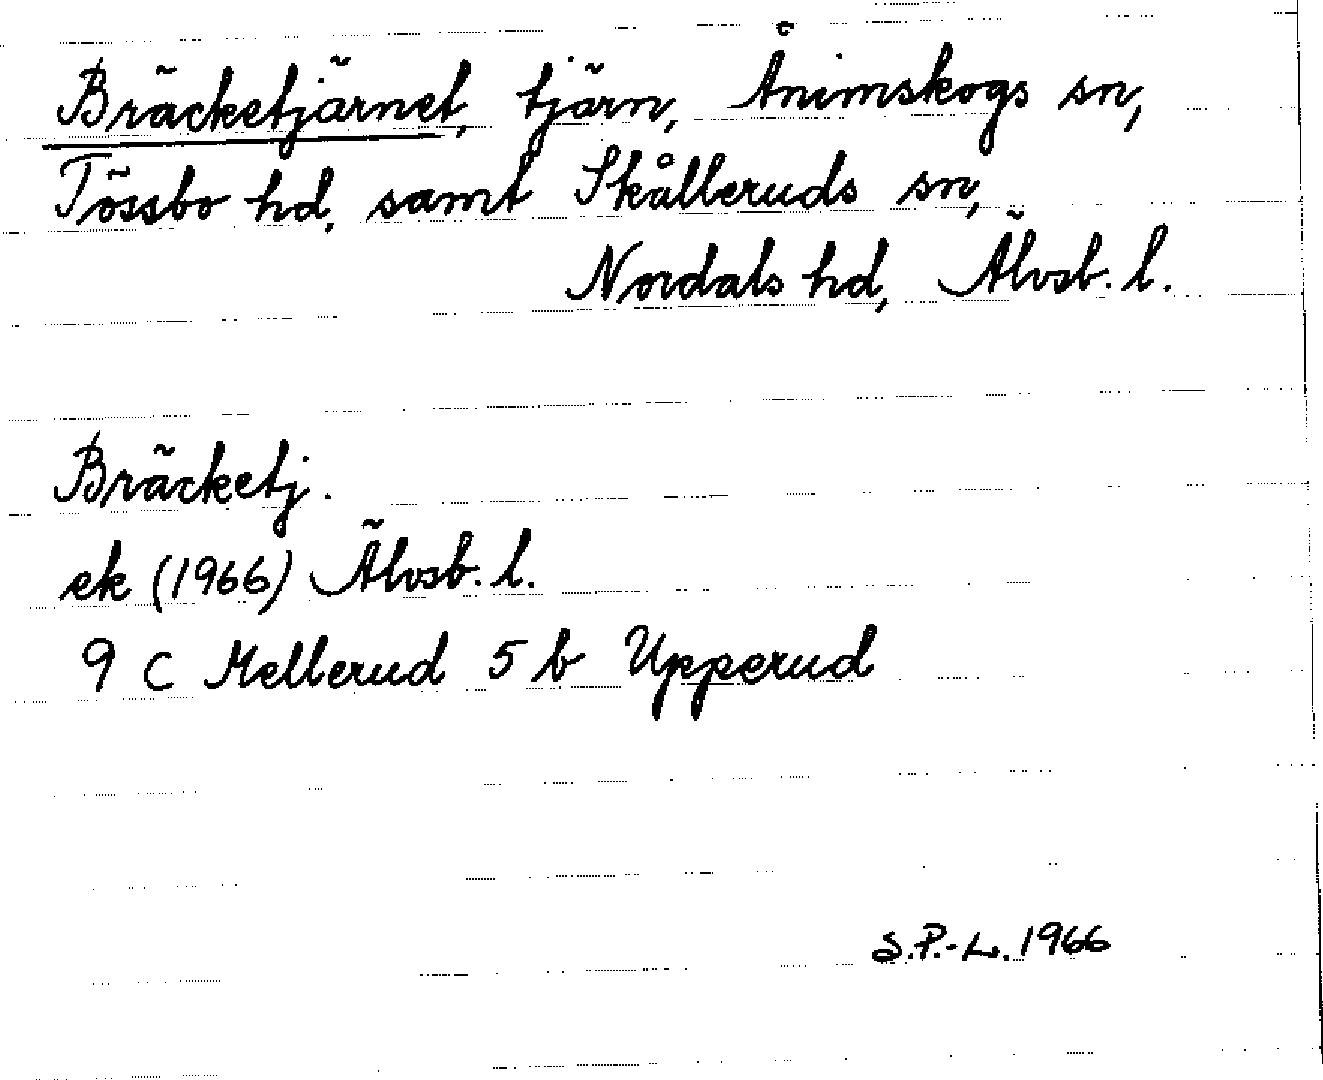 Bräcketjärnet, tjärn, Ånimskogs sn,
Tössbo hd, samt Skålleruds sn,
Nordals hd, Älvsb. l.
Bräcketj.
ek (1966) Älvsb. l.
9 C Mellerud 5 b Upperud
S.P.-L. 1966